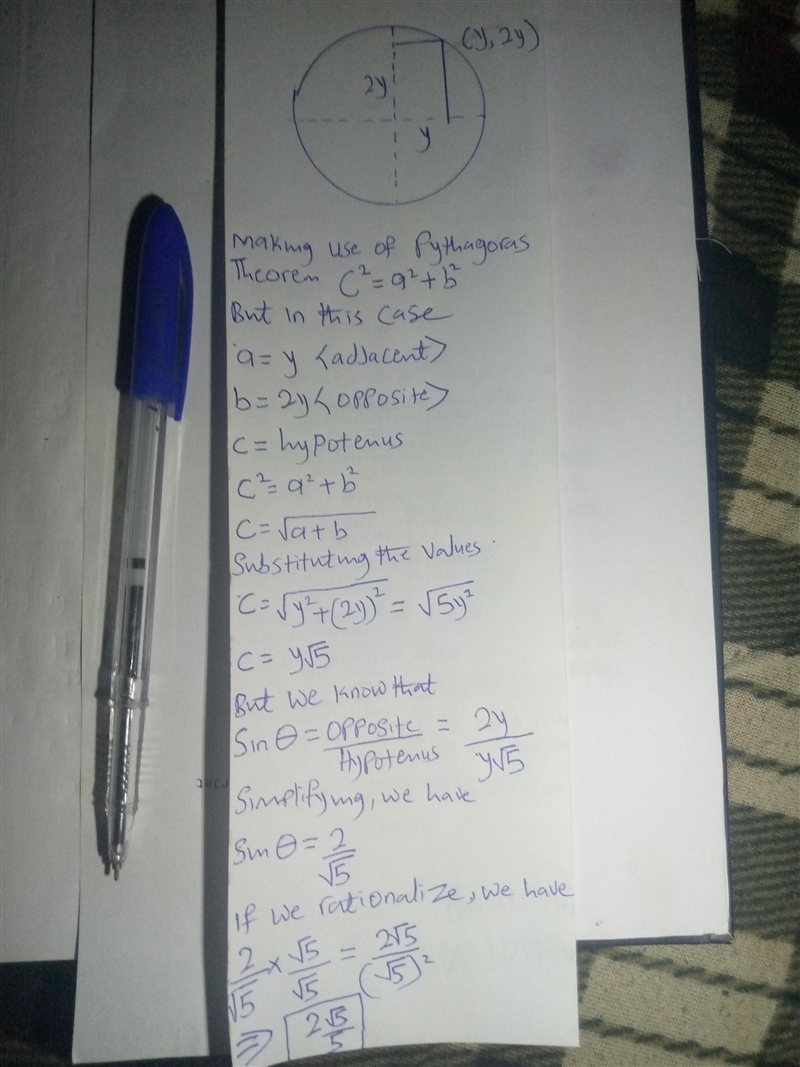 (y, 2y)
2y
y
Making use of Pythagoras
Theorem C² = a² + b²
But in this case
a = y <adjacent>
b = 2y <opposite>
C = hypotenus
C² = a² + b²
C = √a+b
Substituting the values
C = √y²+(2y)² = √5y²
C = y√5
But we know that
Sin θ = Opposite/Hypotenus = 2y/y√5
Simplifying, we have
Sin θ = 2/√5
If we rationalize, we have
2/√5 × √5/√5 = 2√5/(√5)²
⇒ 2√5/5